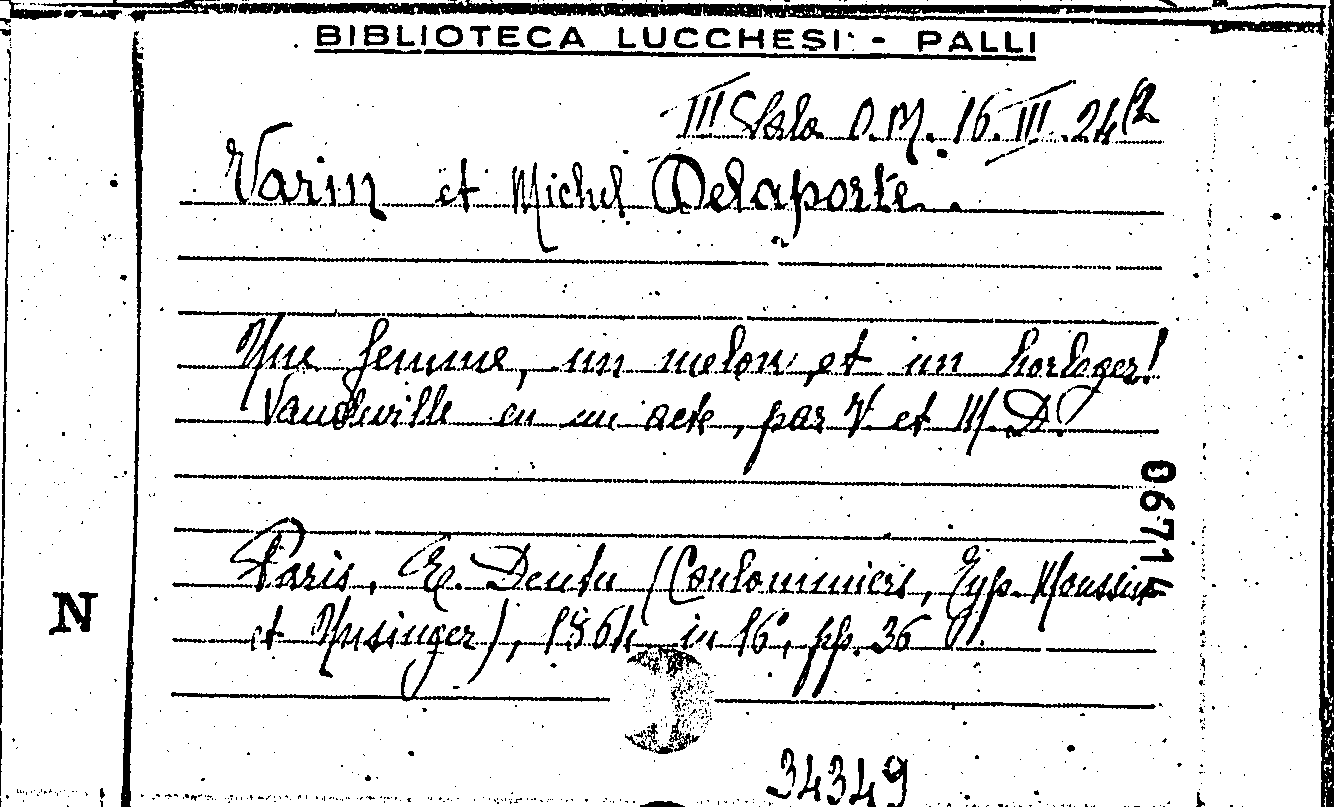 BIBLIOTECA LUCCHESI - PALLI
III Sala O.M. 16.III.24(2
Varin et Michel Delaporte.
Une femme, un melon, et un horloger!
Vaudeville en un acte, par V. et M. D.
Paris, E. Dentu (Coulommiers, Typ. Moussin
et Unsinger), 1864 in 16°, pp. 36
06714
N
34349